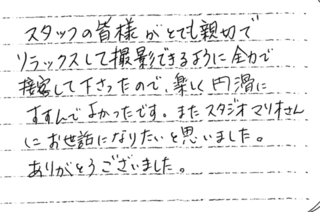 スタッフの皆様がとても親切で
リラックスして撮影できるように全力で
接客して下さったので、楽しく円滑に
すすんでよかったです。またスタジオマリオさん
にお世話になりたいと思いました。
ありがとうございました。